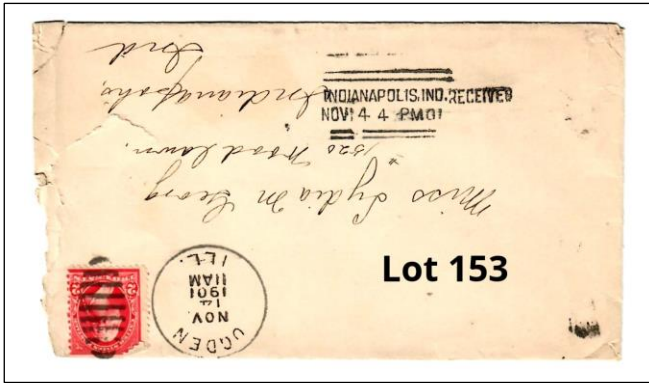 INDIANAPOLIS, IND. RECEIVED
NOV 14 4 PM 01
Miss Lydia M Georg
1520 Woodlawn.
Indianapolis,
Ind
OGDEN
NOV.
14
11AM
1901
ILL.
Lot 153